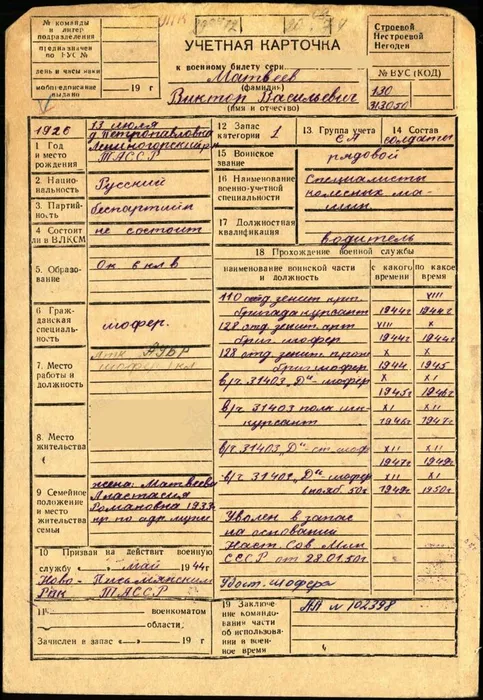 № команды
и литер
подразделения
предназначен
по ВУС №
день и часы явки
мобпредписание
выдано
19 г
УЧЕТНАЯ КАРТОЧКА
к военному билету серии
Матвеев
(фамилия)
Виктор Васильевич
(имя и отчество)
Строевой
Нестроевой
Негоден
№ ВУС (КОД)
130
1926
13 июля
1 Год
и место
рождения
д Петропавловка
Лениногорский р-н
ТАССР
2 Нацио-
нальность
Русский
3 Партий-
ность
беспартийн
4 Состоит
ли в ВЛКСМ
не состоит
5 Образо-
вание
Ок 6 клв
6 Граж-
данская
специаль-
ность
шофер.
7 Место
работы и
должность
8 Место
жительства
9 Семейное
положение
и место
жительства
семьи
жена. Матвеева
Анастасия
Романовна
10 Призван на действит военную
службу «—» май 1944г
Ново- Письмянским
Рвк ТАССР
11
военкоматом
области;
Зачислен в запас «—» 19 г
12 Запас
категории
1
13 Группа учета
СА
14 Состав
солдаты
15 Воинское
звание
рядовой
16 Наименование
военно-учетной
специальности
Специалисты
колесных ма-
шин
17 Должностная
квалификация
водитель
18 Прохождение военной службы
наименование воинской части
и должность
с какого
времени
по какое
время
110 отд зенит
бригада курсант
1944г
VIII
1944г
128 отд. зенит. арт
бриг. шофер
VIII
1944г
X
1944г
128 отд. зенит
бриг шофер
X
1944
X
1945
в/ч 31403 „Д" шофер
X
1945г
XI
1946г
в/ч 31403
курсант
XI
1946г
XII
1947г
в/ч 31403 „Д" ст. шоф
XII
1947г
XII
1949г
в/ч „Д" шофер
XII
1949г
XI
1950г
Уволен в запас
на основании
Сов Мин
СССР от
Удост. шофера
19 Заключе-
ние
командова-
ния части
об использо-
вании в воен-
ное время
АА № 102398